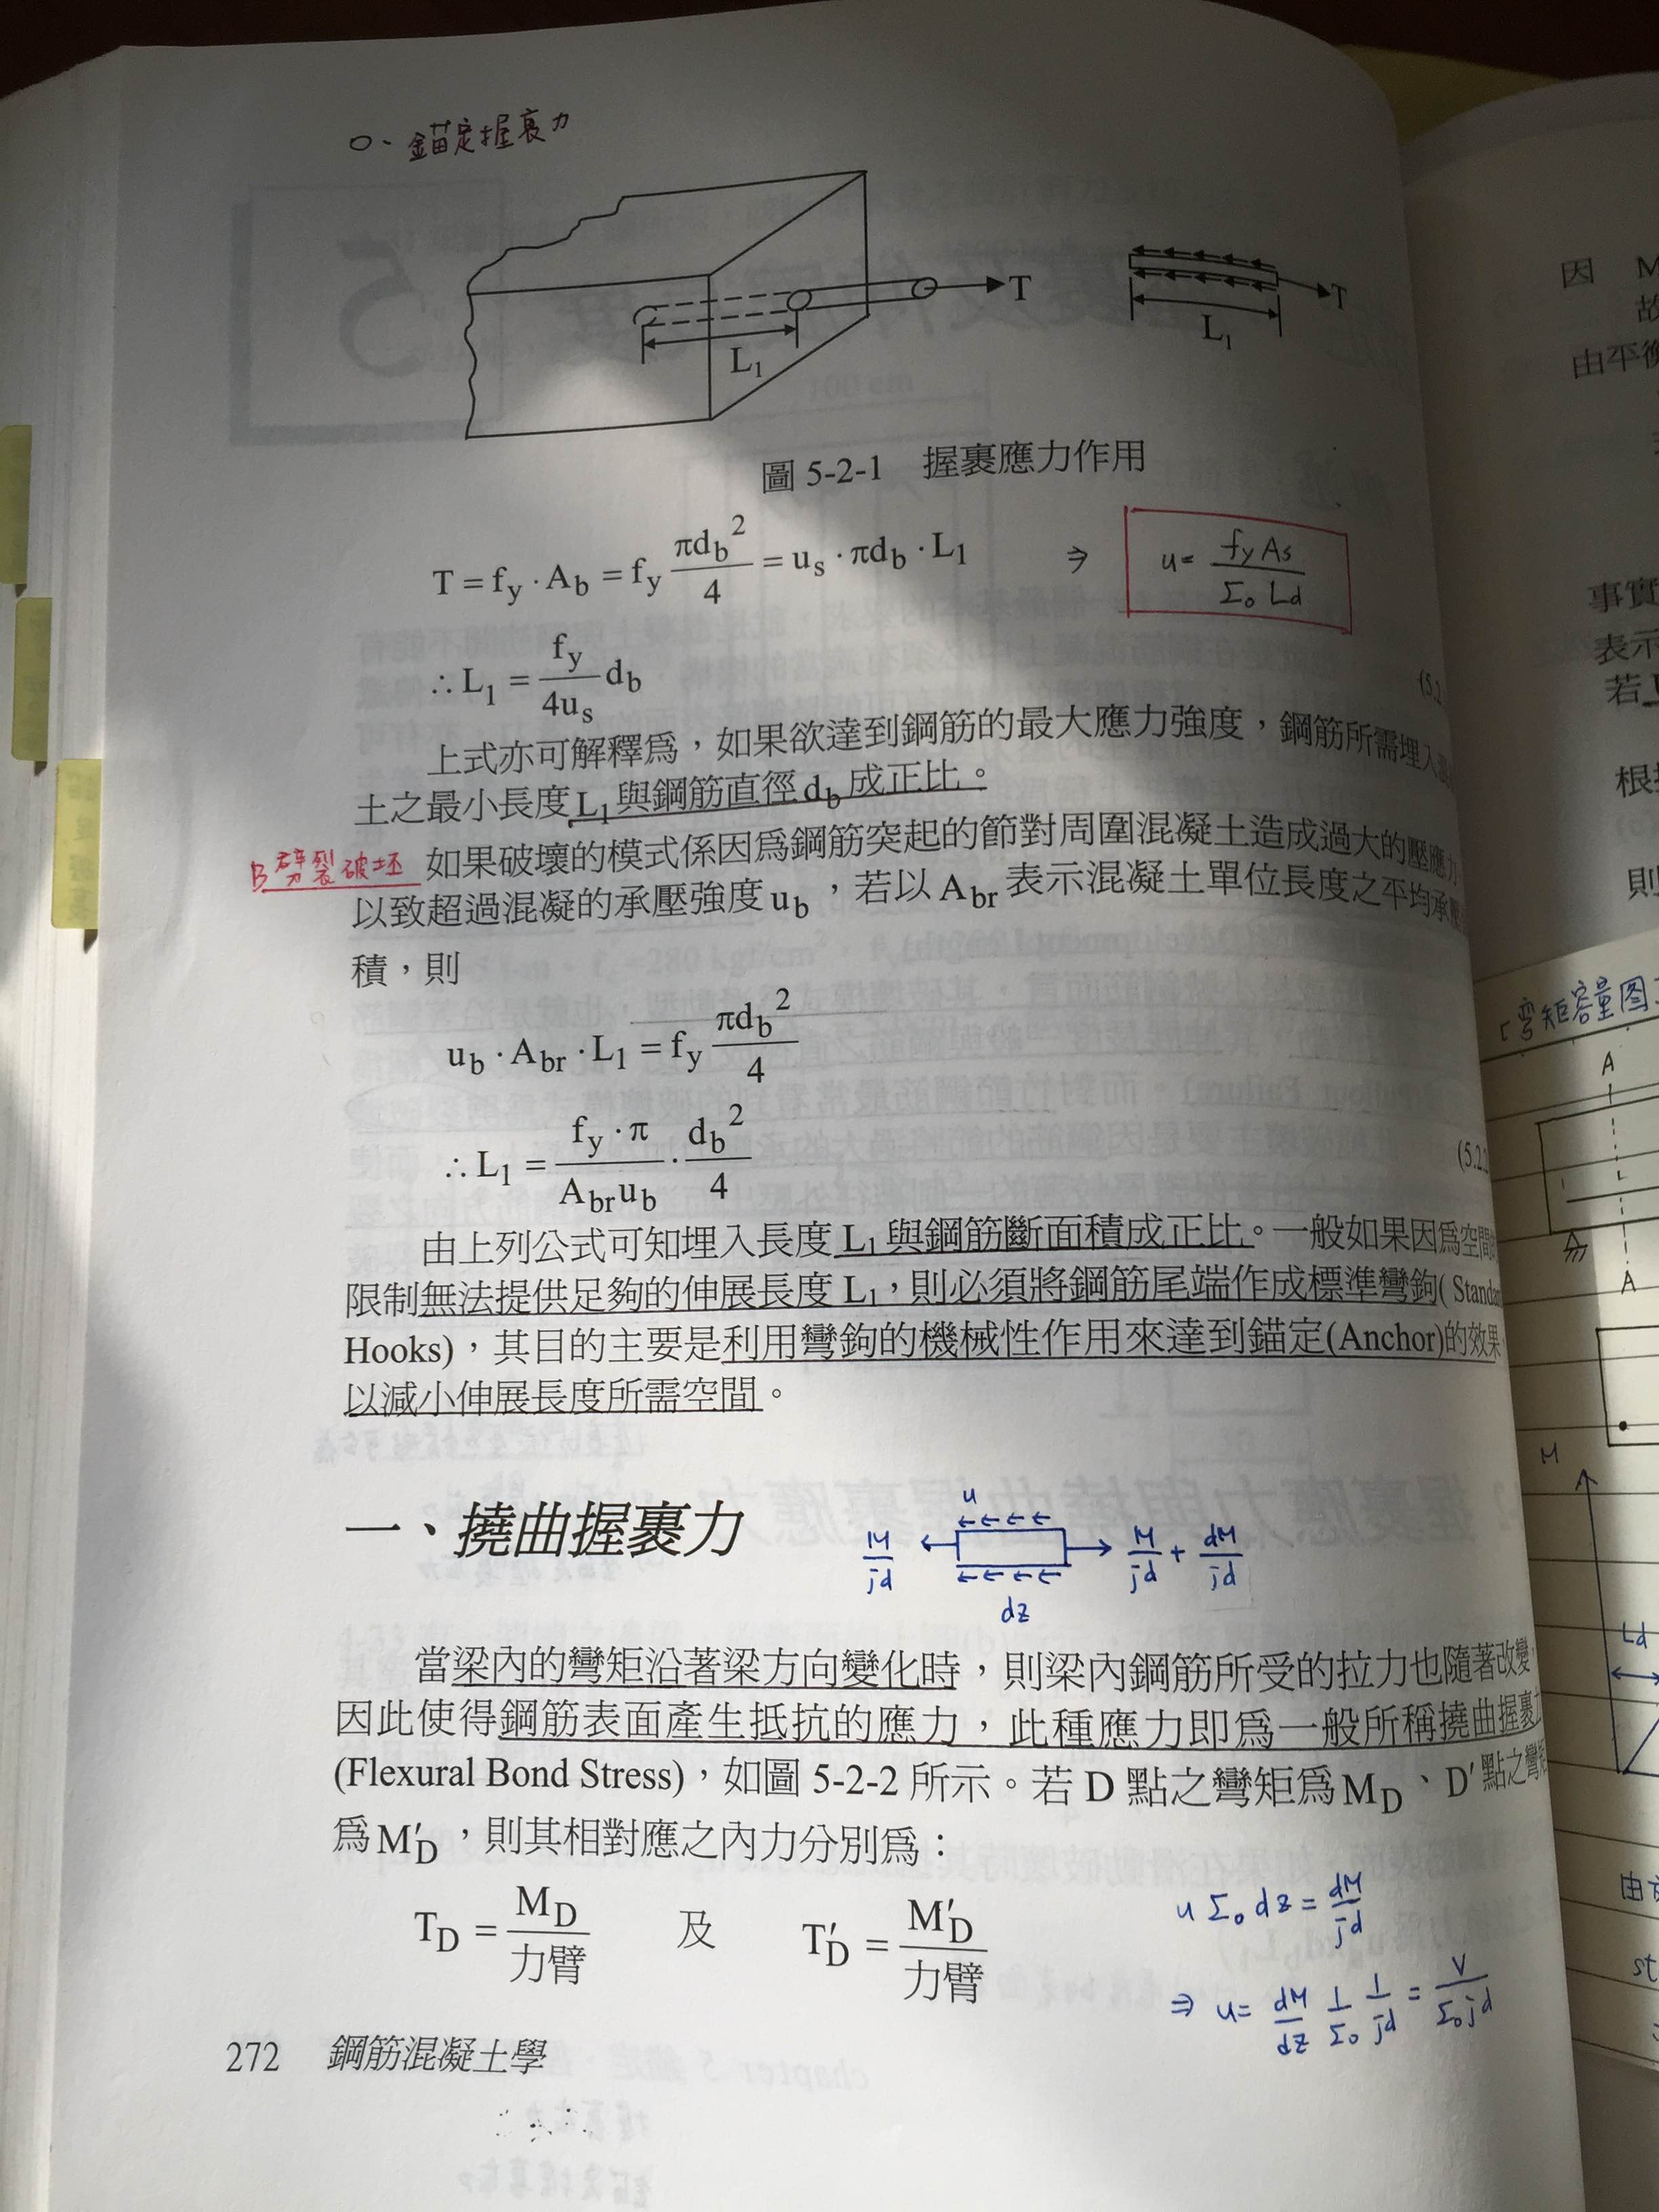 ○、錨定握裹力
T
L₁
T
L₁
圖 5-2-1 握裹應力作用
T = f_y · A_b = f_y πd_b²/4 = u_s · πd_b · L₁ ⇒ u = f_y A_s / Σ₀ Ld
∴ L₁ = f_y/4u_s d_b
(5.2
上式亦可解釋為，如果欲達到鋼筋的最大應力強度，鋼筋所需埋入
土之最小長度 L₁ 與鋼筋直徑 d_b 成正比。
劈裂破坯 如果破壞的模式係因為鋼筋突起的節對周圍混凝土造成過大的壓應力
以致超過混凝的承壓強度 u_b，若以 A_br 表示混凝土單位長度之平均承壓
積，則
u_b · A_br · L₁ = f_y πd_b²/4
∴ L₁ = f_y · π / A_br u_b · d_b²/4
(5.2.2
由上列公式可知埋入長度 L₁ 與鋼筋斷面積成正比。一般如果因為空間
限制無法提供足夠的伸展長度 L₁，則必須將鋼筋尾端作成標準彎鉤( Standar
Hooks)，其目的主要是利用彎鉤的機械性作用來達到錨定(Anchor)的效果，
以減小伸展長度所需空間。
一、撓曲握裹力
u
M/jd M/jd + dM/jd
dz
當梁內的彎矩沿著梁方向變化時，則梁內鋼筋所受的拉力也隨著改變，
因此使得鋼筋表面產生抵抗的應力，此種應力即為一般所稱撓曲握裹力
(Flexural Bond Stress)，如圖 5-2-2 所示。若 D 點之彎矩為 M_D、D′ 點之彎矩
為 M′_D，則其相對應之內力分別為：
T_D = M_D/力臂 及 T′_D = M′_D/力臂
u Σ₀ dz = dM/jd
⇒ u = dM/dz 1/Σ₀ 1/jd = V/Σ₀jd
272 鋼筋混凝土學
因 M
故
由平衡
事實
表示
若
根
則
「弯矩容量图
A
A
M
Ld
由
st